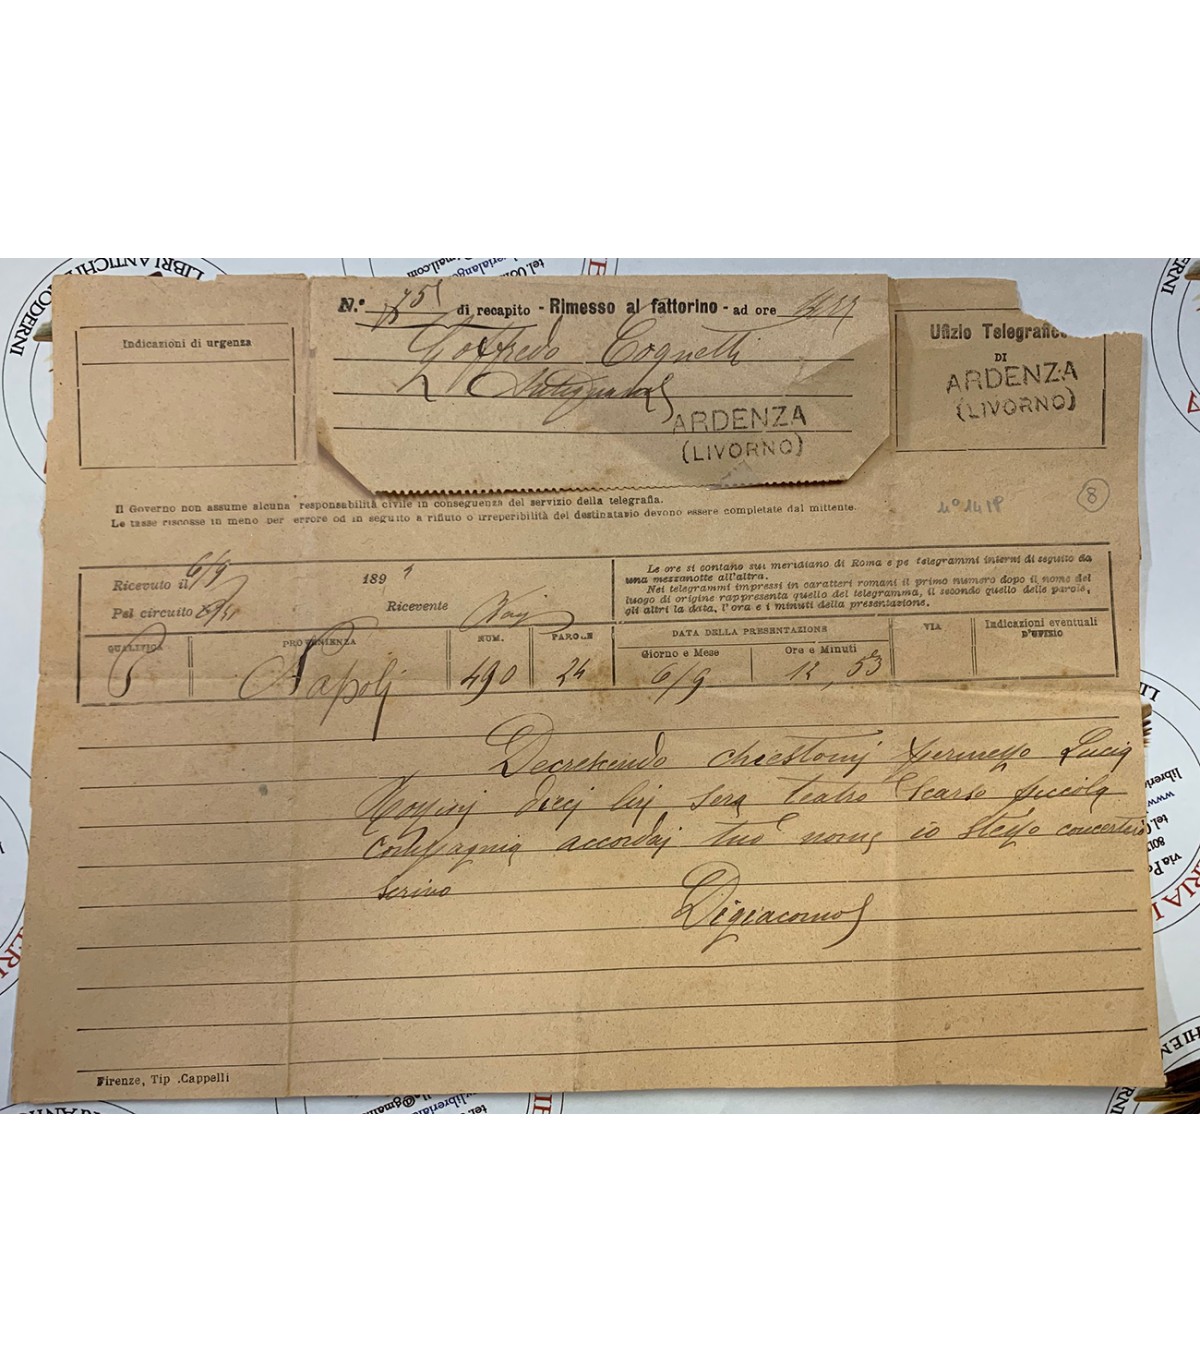 LIBRI ANTICHI E MODERNI
N.º 75 di recapito - Rimesso al fattorino - ad ore
Goffredo Cognetti
ARDENZA
(LIVORNO)
Indicazioni di urgenza
Ufizio Telegrafico
DI
ARDENZA
(LIVORNO)
Il Governo non assume alcuna responsabilità civile in conseguenza del servizio della telegrafia.
Le tasse riscosse in meno per errore od in seguito a rifiuto o irreperibilità del destinatario devono essere completate dal mittente.
8
Ricevuto il 6/9 189
Pel circuito Ricevente
Le ore si contano sul meridiano di Roma e pe telegrammi interni di seguito da
una mezzanotte all'altra.
Nei telegrammi impressi in caratteri romani il primo numero dopo il nome del
luogo di origine rappresenta quello del telegramma, il secondo quello delle parole,
gli altri la data, l'ora e i minuti della presentazione.
QUALIFICA PROVENIENZA NUM. PAROLE DATA DELLA PRESENTAZIONE VIA Indicazioni eventuali
D'UFIZIO
Giorno e Mese Ore e Minuti
Napoli 490 24 6/9 12,53
chiestomi permesso Lucia
dieci sera teatro scarso piccola
compagnia accordai tuo nome io stesso
scrivo
Digiacomo
Firenze, Tip .Cappelli